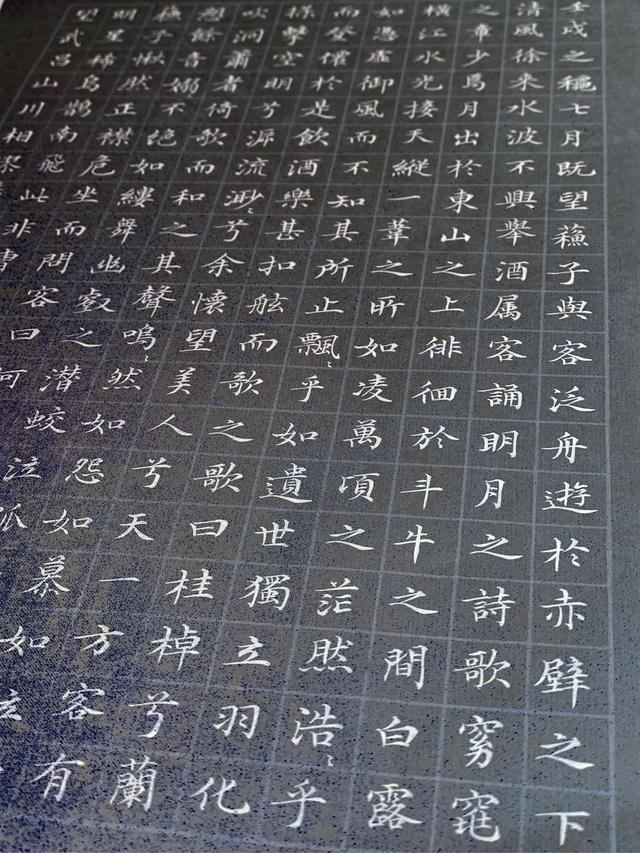 壬戌之穐七月既望蘓子與客泛舟遊於赤壁之下
清風徐来水波不興舉酒属客誦明月之詩歌窈窕
之章少焉月出於東山之上徘徊於斗牛之間白露
横江水光接天縱一葦之所如凌萬頃之茫然浩〻乎
如馮虛御風而不知其所止飄〻乎如遺世獨立羽化
而登僊於是飲酒樂甚扣舷而歌之歌曰桂棹兮蘭
槳擊空明兮泝流渺〻兮余懷望美人兮天一方客有
吹洞簫者倚歌而和之其聲嗚〻然如怨如慕如
愬餘音嫋不絶如縷舞幽壑之潜蛟泣
蘓子愀然正襟危坐而問客曰何
明星稀烏鵲南飛此非曹
望武昌山川相